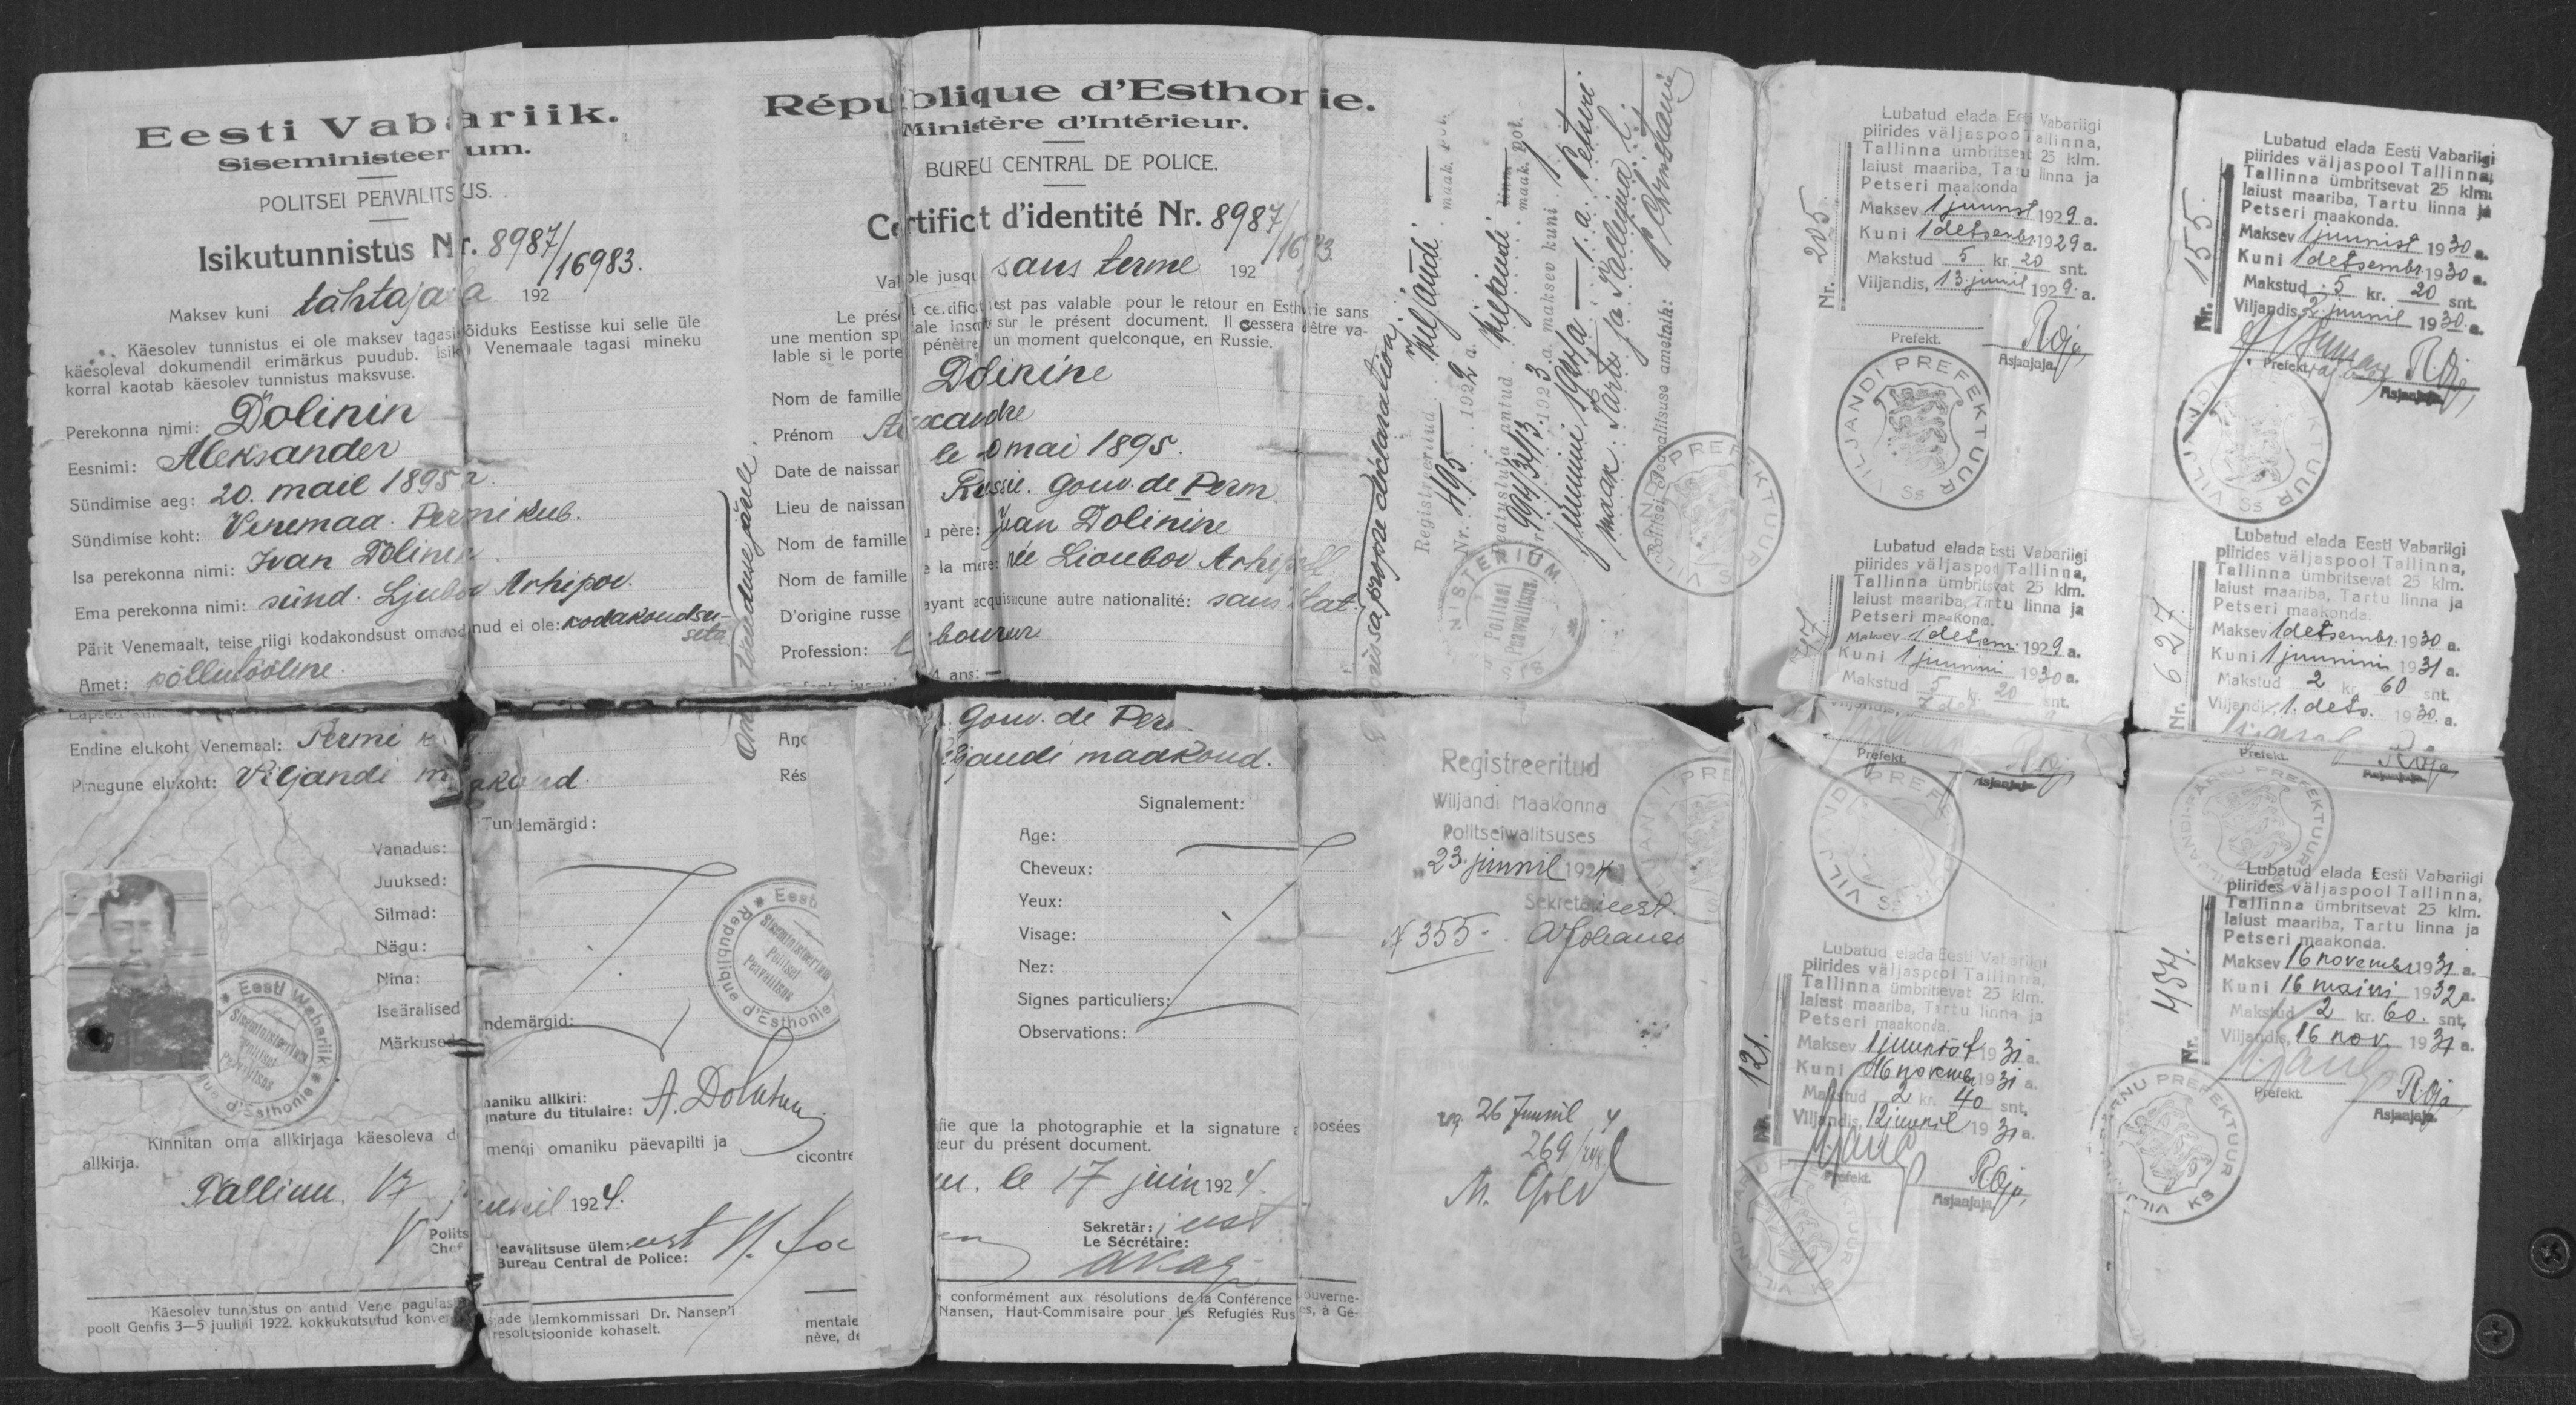 Eesti Vabariik.
Siseministeerium.
POLITSEI PEAVALITSUS.
Isikutunnistus Nr. 8987/16983.
Maksev kuni tähtajata 192
Käesolev tunnistus ei ole maksev tagasisõiduks Eestisse kui selle üle
käesoleval dokumendil erimärkus puudub. Isiku Venemaale tagasi mineku
korral kaotab käesolev tunnistus maksvuse.
Perekonna nimi: Dolinin
Eesnimi: Aleksander
Sündimise aeg: 20. mail 1895 a.
Sündimise koht: Venemaa. Permi kub.
Isa perekonna nimi: Ivan Dolinin
Ema perekonna nimi: sünd. Ljubov Arhipov.
Pärit Venemaalt, teise riigi kodakondsust omandanud ei ole: kodakondsu-
seta
Amet: põllutööline.
Endine elukoht Venemaal: Permi k
Praegune elukoht: Viljandi maakond.
Tundemärgid:
Vanadus:
Juuksed:
Silmad:
Nägu:
Nina:
Iseäralised
ndemärgid:
Märkused
Eesti Wabariik
Siseministeerium
Politsei
Peavalitsus
d'Esthonie
Eesti
Siseministeerium
Politsei
Peavalitsus
République d'Esthonie
maniku allkiri:
nature du titulaire: A. Dolinin
Kinnitan oma allkirjaga käesoleva d
mendi omaniku päevapilti ja
allkirja.
cicontre
Tallinn. 17 juunil 1924.
Polits
Chef
eavalitsuse ülem: eest
Bureau Central de Police:
Käesolev tunnistus on antud Vene pagulaste
ade ülemkommissari Dr. Nansen'i
poolt Genfis 3—5 juulini 1922. kokkukutsutud konver
resolutsioonide kohaselt.
mentale
nève, de
Oma tõenduse järele.
République d'Esthonie.
Ministère d'Intérieur.
BUREU CENTRAL DE POLICE.
Certifict d'identité Nr. 8987/
Valable jusqu sans terme 192
Le présent certificat n'est pas valable pour le retour en Esthonie sans
une mention spéciale inscrite sur le présent document. Il cessera d'être va-
lable si le porte pénètre, un moment quelconque, en Russie.
Nom de famille Dolinine
Prénom Alexandre
Date de naissan le 20 mai 1895.
Lieu de naissan Russie. Gouv. de Perm
Nom de famille u père: Jean Dolinine
Nom de famille e la mère: née Lioubov Arhipoff.
D'origine russe ayant acquis aucune autre nationalité: sans état.
Profession: laboureur
4 ans: —
Anc
. Gouv. de Perm
Rés
iljandi maakond.
Signalement:
Age:
Cheveux:
Yeux:
Visage:
Nez:
Signes particuliers:
Observations:
fie que la photographie et la signature a posées
teur du présent document.
le 17 juin 1924.
Sekretär: eest
Le Sécrétaire:
conformément aux résolutions de la Conférence ouverne-
Nansen, Haut-Commisaire pour les Refugiés Rus es, à Gé-
sa propre déclaration.
Registreeritud Viljandi maak. pol.
Nr. 495 1922 a.
Peatusluba antud Viljandi linna maak. pol.
Nr. 994/34/3 1923 a. maksev kuni 1.
juunini 1925 a — i. a. Petseri
maak. Tartu ja Tallinna l.
Politsei Peavalitsuse ametnik:
VILJANDI PREFEKTUUR
Politsei
Peawalitsus
Registreeritud
Wiljandi Maakonna
Politseiwalitsuses
23. juunil 1924
Sekretäri eest
N 355.
26 Juunil 4
269
Lubatud elada Eesti Vabariigi
piirides väljaspool Tallinna,
Tallinna ümbritsevat 25 klm.
laiust maariba, Tartu linna ja
Petseri maakonda
Maksev 1 juunist 1929 a.
Kuni 1 detsembr. 1929 a.
Makstud 5 kr. 20 snt.
Viljandis, 13. juunil 1929. a.
Nr. 205.
Prefekt.
Roja
Asjaajaja.
VILJANDI PREFEKTUUR
Ss
Lubatud elada Eesti Vabariigi
piirides väljaspool Tallinna,
Tallinna ümbritsevat 25 klm.
laiust maariba, Tartu linna ja
Petseri maakond.
Maksev 1 detsem. 1929 a.
Kuni 1 juunini 1930 a.
Makstud 5 kr. 20 snt.
Prefekt.
Asjaajaja
VILJANDI PREFEKTUUR
Ss
Lubatud elada Eesti Vabariigi
piirides väljaspool Tallinna,
Tallinna ümbritsevat 25 klm.
laiust maariba, Tartu linna ja
Petseri maakonda.
Maksev 1 juunist 1931 a.
Kuni 16 novembr 1931 a.
Makstud 2 kr. 40 snt.
Viljandis, 12 juunil 1931 a.
Nr. 121.
Prefekt.
Roja
Asjaajaja
Lubatud elada Eesti Vabariigi
piirides väljaspool Tallinna,
Tallinna ümbritsevat 25 klm.
laiust maariba, Tartu linna ja
Petseri maakonda.
Maksev 1 juunist 1930 a.
Kuni 1 detsembr. 1930 a.
Makstud 5 kr. 20 snt.
Viljandis, 2. juunil 1930. a.
Nr. 155.
Prefekt
Roja
Asjaajaja
VILJANDI PREFEKTUUR
Ss
Lubatud elada Eesti Vabariigi
piirides väljaspool Tallinna,
Tallinna ümbritsevat 25 klm.
laiust maariba, Tartu linna ja
Petseri maakonda.
Maksev 1 detsembr. 1930 a.
Kuni 1 juunini 1931 a.
Makstud 2 kr. 60 snt.
Viljandis 1. dets. 1930. a.
Nr. 627.
Prefekt.
Roja
Lubatud elada Eesti Vabariigi
piirides väljaspool Tallinna,
Tallinna ümbritsevat 25 klm.
laiust maariba, Tartu linna ja
Petseri maakonda.
Maksev 16 novembr 1931 a.
Kuni 16 maini 1932 a.
Makstud 2 kr. 60. snt.
Viljandis, 16 nov. 1931 a.
Nr. 454.
Prefekt.
Roja
Asjaajaja